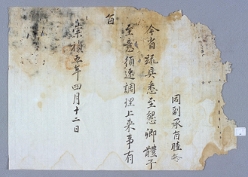 同副承旨臣
今省疏具悉至懇卿體予
至意須速調理上來事有
旨
崇禎五年四月十二日